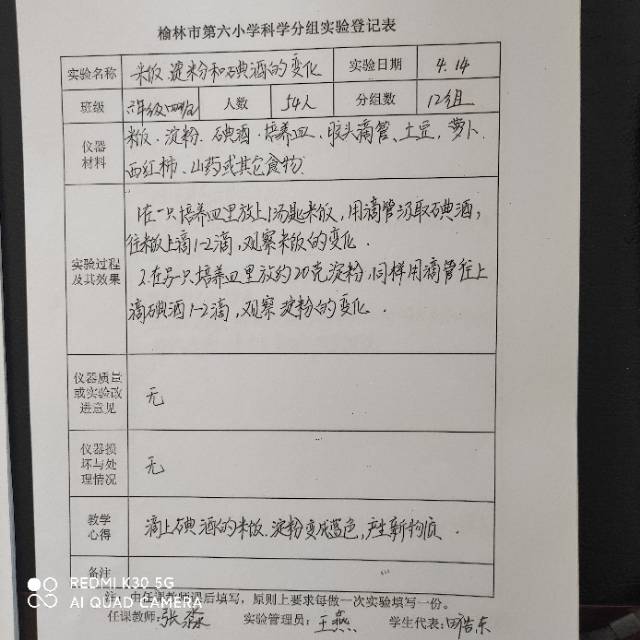 榆林市第六小学科学分组实验登记表
实验名称 米饭、淀粉和碘酒的变化 实验日期 4.14
班级 六年级四班 人数 54人 分组数 12组
仪器材料 米饭、淀粉、碘酒、培养皿、胶头滴管、土豆、萝卜、
西红柿、山药或其它食物.
实验过程及其效果
1.在一只培养皿里放上1汤匙米饭,用滴管汲取碘酒,
往米饭上滴1-2滴,观察米饭的变化.
2.在另一只培养皿里放约20克淀粉,同样用滴管往上
滴碘酒1-2滴,观察淀粉的变化.
仪器质量或实验改进意见 无
仪器损坏与处理情况 无
教学心得 滴上碘酒的米饭、淀粉变成蓝色,产生新物质.
备注
注:由任课教师课后填写,原则上要求每做一次实验填写一份。
任课教师:张淼 实验管理员:王燕 学生代表:
REDMI K30 5G
AI QUAD CAMERA